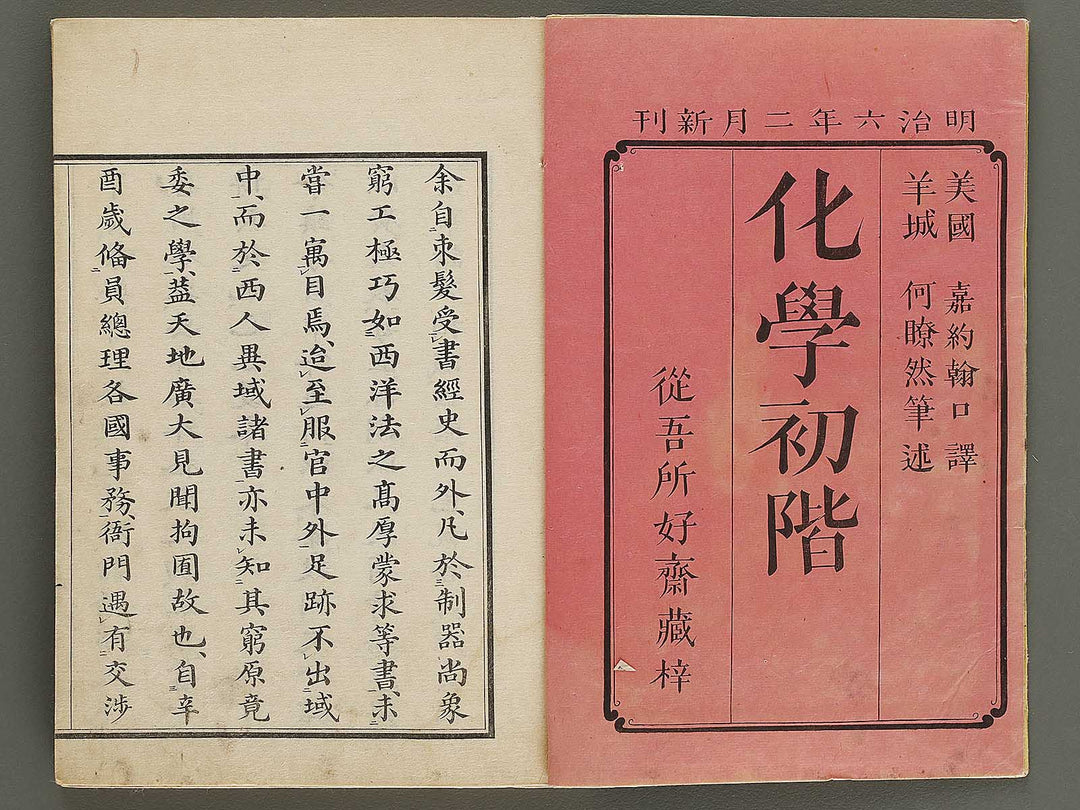 明治六年二月新刊
美國 嘉約翰口譯
羊城 何瞭然筆述
化學初階
從吾所好齋藏梓
余自束髮受書經史而外、凡於制器尚象
窮工極巧如西洋法之髙厚蒙求等書、未
嘗一寓目焉、迨至服官中外足跡不出域
中、而於西人異域諸書亦未知其窮原竟
委之學、葢天地廣大見聞拘囿故也、自辛
酉歲俻員總理各國事務、衙門遇有交涉